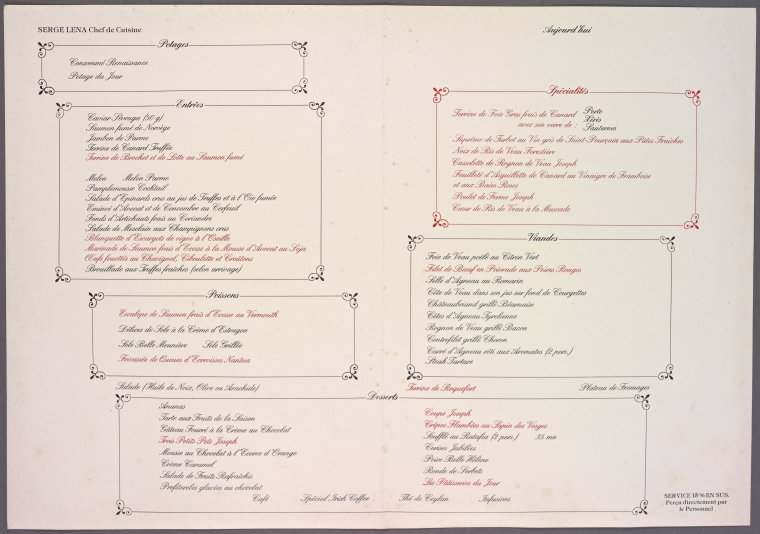 SERGE LENA Chef de Cuisine
Potages
Consommé Renaissance
Potage du Jour
Entrées
Caviar Sevruga (50 g)
Saumon fumé de Norvège
Jambon de Parme
Terrine de Canard Truffée
Terrine de Brochet et de Lotte au Saumon fumé
Melon Melon Parme
Pamplemousse Cocktail
Salade d'Epinards crus au jus de Truffes et à l'Oie fumée
Emincé d'Avocat et de Concombre au Cerfeuil
Fonds d'Artichauts frais au Coriandre
Salade de Mesclain aux Champignons crus
Blanquette d'Escargots de vigne à l'Oseille
Marinade de Saumon frais d'Ecosse à la Mousse d'Avocat au Soja
Œufs fouettés au Chavignol, Ciboulette et Croûtons
Brouillade aux Truffes fraîches (selon arrivage)
Poissons
Escalope de Saumon frais d'Ecosse au Vermouth
Délices de Sole à la Crème d'Estragon
Sole Belle Meunière Sole Grillée
Fricassée de Queues d'Ecrevisses Nantua
Salade (Huile de Noix, Olive ou Arachide)
Aujourd'hui
Spécialités
Terrine de Foie Gras frais de Canard Porto
avec son verre de : Xérès
Sauternes
Suprême de Turbot au Vin gris de Saint-Pourçain aux Pâtes Fraîches
Noix de Ris de Veau Forestière
Cassolette de Rognon de Veau Joseph
Feuilleté d'Aiguillette de Canard au Vinaigre de Framboise
et aux Baies Roses
Poulet de Ferme Joseph
Cœur de Ris de Veau à la Muscade
Viandes
Foie de Veau poêlé au Citron Vert
Filet de Bœuf en Poivrade aux Poires Rouges
Selle d'Agneau au Romarin
Côte de Veau dans son jus sur fond de Courgettes
Châteaubriand grillé Béarnaise
Côtes d'Agneau Tyrolienne
Rognon de Veau grillé Bacon
Contrefilet grillé Choron
Carré d'Agneau rôti aux Aromates (2 pers.)
Steak Tartare
Terrine de Roquefort Plateau de Fromages
Desserts
Ananas
Tarte aux Fruits de la Saison
Gâteau Fourré à la Crème au Chocolat
Trois Petits Pots Joseph
Mousse au Chocolat à l'Ecorce d'Orange
Crème Caramel
Salade de Fruits Rafraîchis
Profiteroles glacées au chocolat
Coupe Joseph
Crêpes Flambées au Sapin des Vosges
Soufflé au Ratafia (2 pers.) 35 mn
Cerises Jubilées
Poire Belle Hélène
Ronde de Sorbets
Les Pâtisseries du Jour
Café Spécial Irish Coffee Thé de Ceylan Infusions
SERVICE 15 % EN SUS.
Perçu directement par
le Personnel